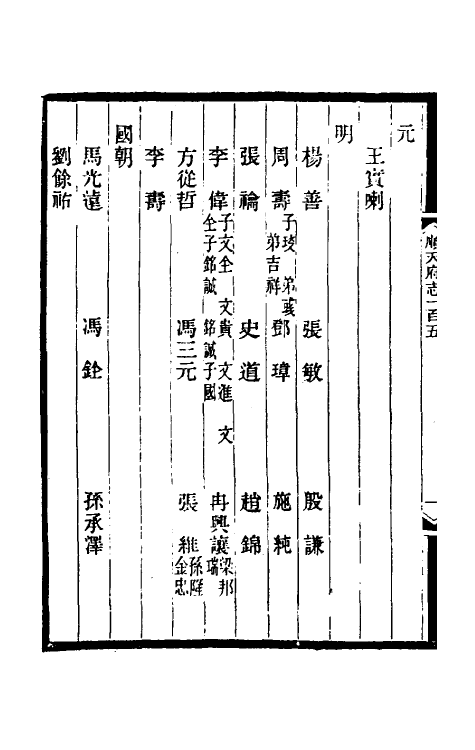 元
王實喇
明
楊善 張敏 殷謙
周壽 子瑛 弟彧 弟吉祥 鄧璋 施純
張禴 史道 趙錦
李偉 子文全 文貴 文進 文全子銘誠 銘誠子國瑞 冉興讓 梁邦瑞
方從哲 馮三元 張維 孫隆 金忠
李壽
國朝
馬光遠 馮銓 孫承澤
劉餘祐
順天府志一百五
一